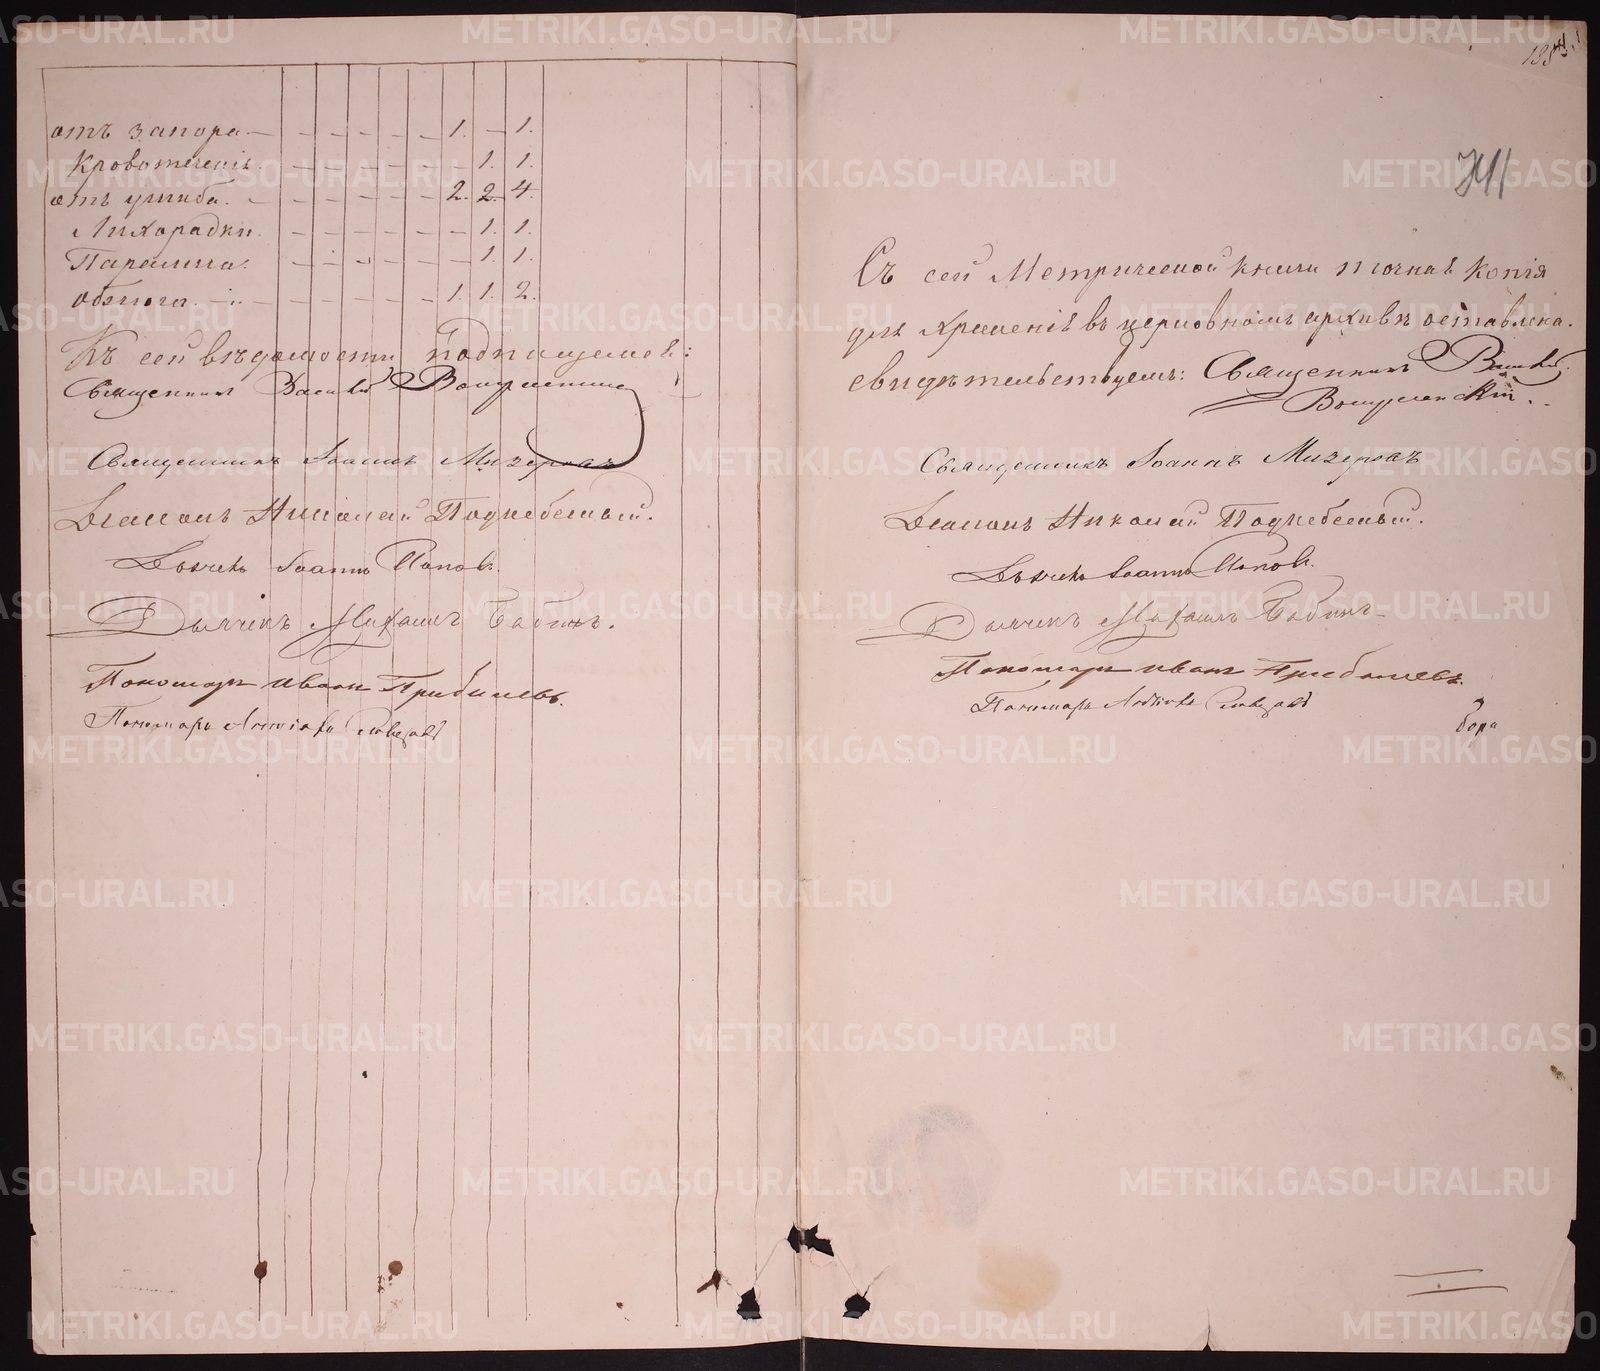 отъ запора. — — — — — — 1. — 1.
Кровотеченія. — — — — — — 1. 1.
отъ ушиба. — — — — — — 2. 2. 4.
Лихорадки. — — — — — — 1. 1.
Паралича. — — — — — — 1. 1.
обжога. — — — — — — 1. 1. 2.
Къ сей вѣдомости подписуемся:
Священникъ Василій
Священникъ Іоаннъ Мизеровъ
Діаконъ Николай Поднебесный.
Дьячекъ Іоаннъ Поповъ.
Дьячекъ Михаилъ Бабинъ.
Пономарь Иванъ Прибылевъ.
Пономарь
741
Съ сей Метрической книги точная копія
для храненія въ церковномъ архивѣ оставлена.
свидѣтельствуемъ: Священникъ Василій
Священникъ Іоаннъ Мизеровъ
Діаконъ Николай Поднебесный.
Дьячекъ Іоаннъ Поповъ.
Дьячекъ Михаилъ Бабинъ
Пономарь Иванъ Прибылевъ.
Пономарь
METRIKI.GASO-URAL.RU